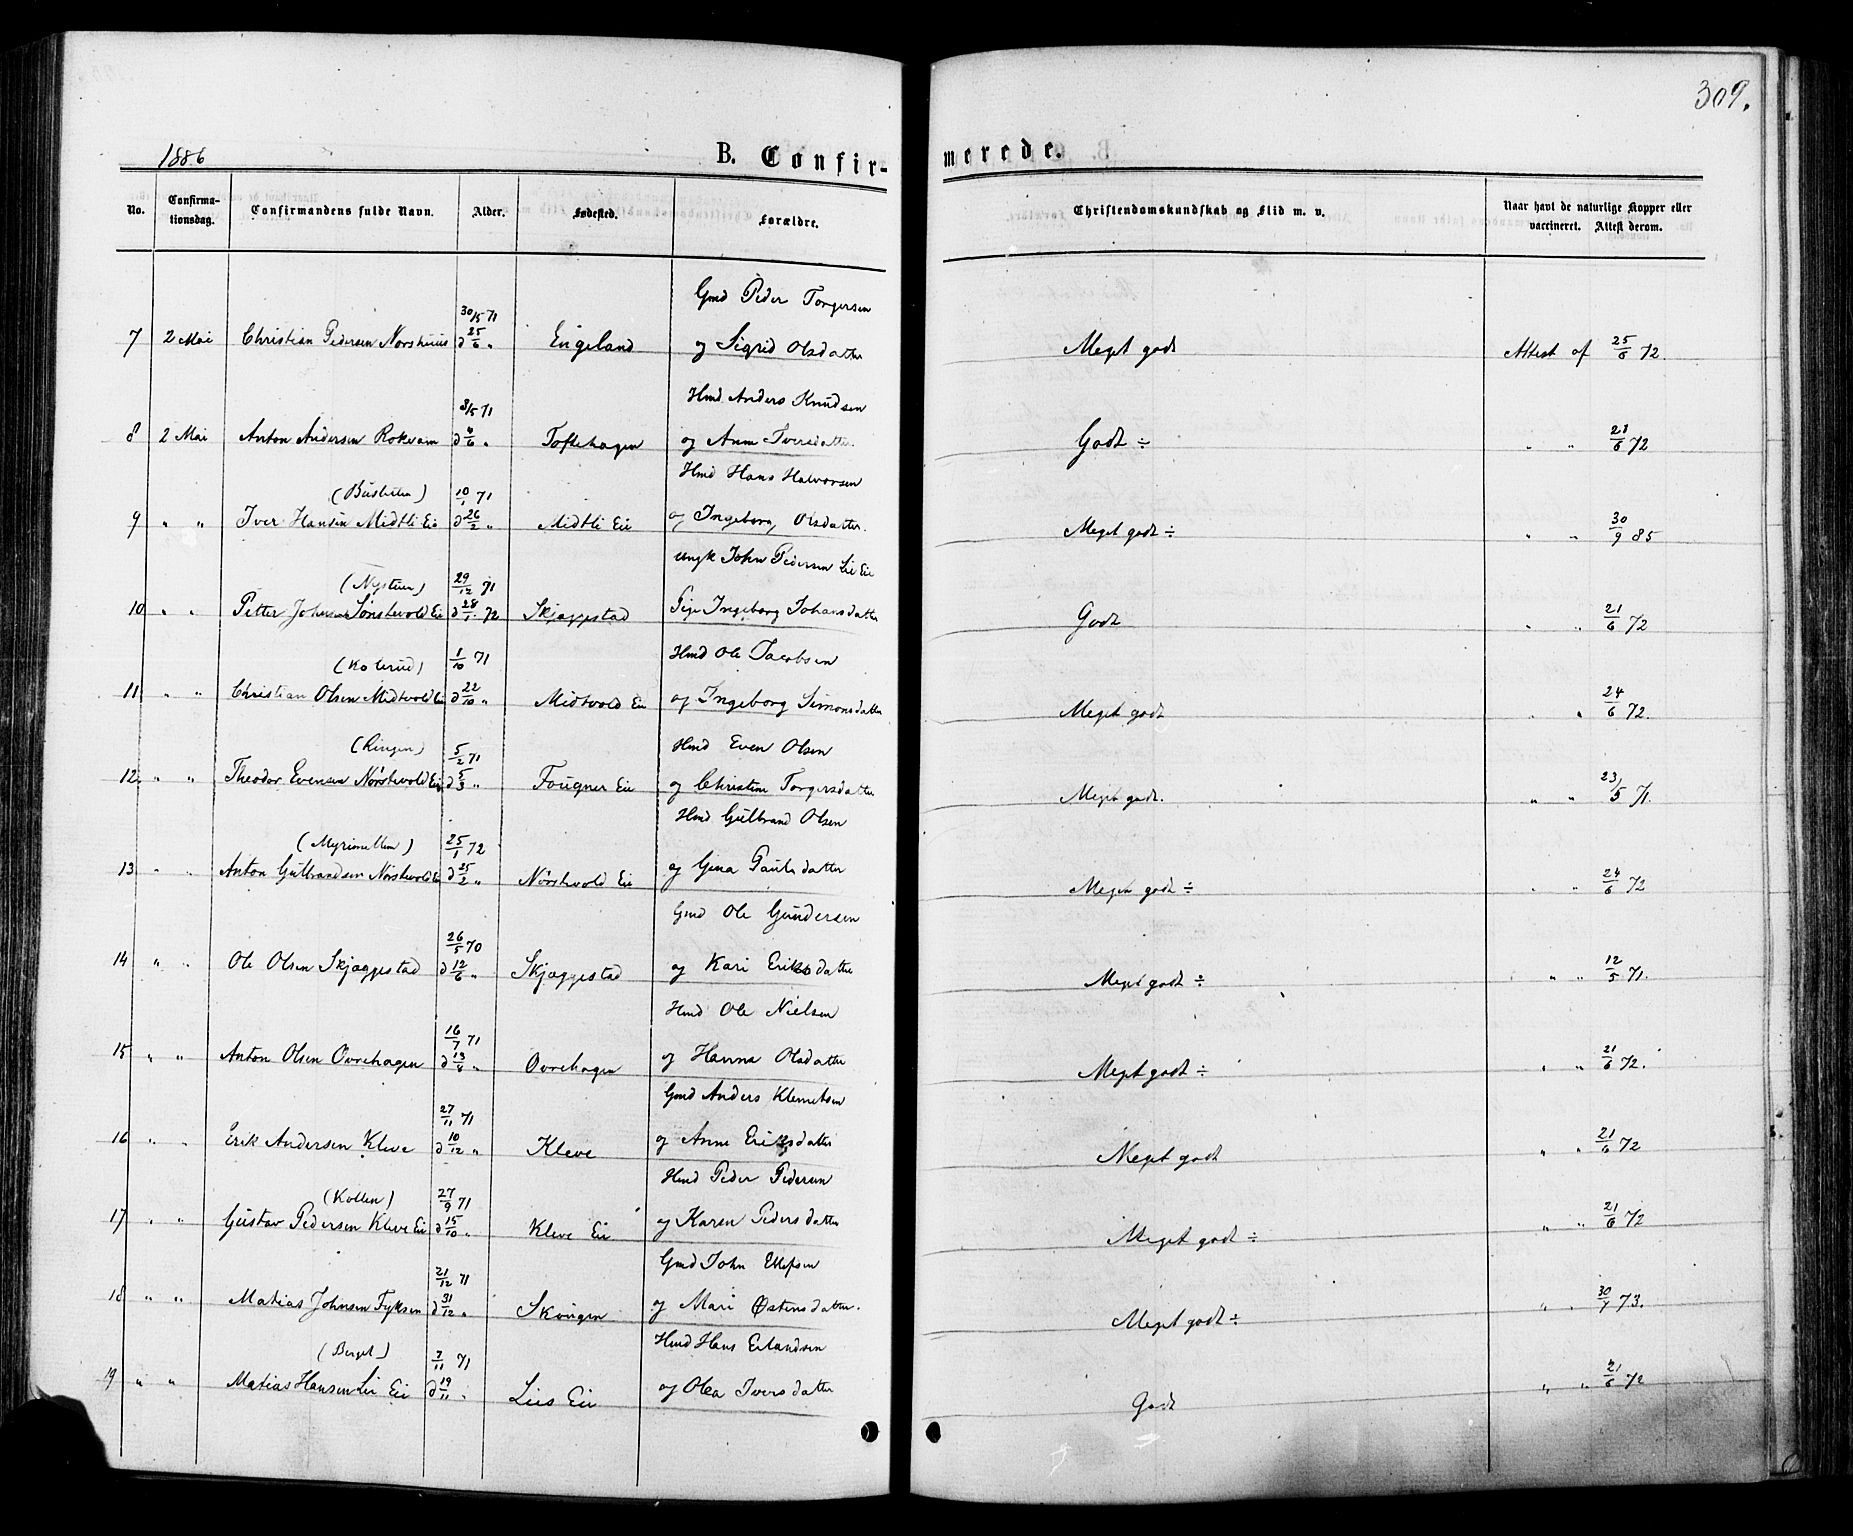 309.
1886
B. Confir-
merede.
No.
Confirma-
tionsdag.
Confirmandens fulde Navn.
Alder.
Fødested.
Forældre.
Christendomskundskab og Flid m. v.
Naar havt de naturlige Kopper eller
vaccineret. Attest derom.
30/5 71 Gmd Peder Torgersen
7 2 Mai Christian Pedersen Norshuus d 25/6 " Engeland og Sigrid Olsdatter Meget godt Attest af 25/6 72.
3/5 71 Hmd Anders Knudsen
8 2 Mai Anton Andersen Rokvam d 4/6 " Toftehagen og Anne Iversdatter. Godt ÷ " " 21/6 72
(Buslien) 10/1 71 Hmd Hans Halvorsen
9 " " Iver Hansen Midtli Eie d 26/2 " Midtli Eie og Ingeborg Olsdatter. Meget godt ÷ " " 30/9 85
(Nystuen) 29/12 71 Ungk John Pedersen Lie Eie
10 " " Petter Johnsen Sørstevold Eie d 28/1 72 Skjæggestad Pige Ingeborg Johansdatter Godt " " 21/6 72
(Kolerud) 1/10 71 Hmd Ole Jacobsen
11 " " Christian Olsen Midtvold Eie d 22/10 " Midtvold Eie og Ingeborg Simonsdatter Meget godt " " 24/6 72.
(Ringen) 5/2 71 Hmd Even Olsen
12. " " Theodor Evensen Nørstevold Eie d 5/3 " Fougner Eie og Christine Torgersdatter Meget godt. " " 23/5 71.
(Myrimellem) 25/1 72 Hmd Gulbrand Olsen
13 " " Anton Gulbrandsen Nørstevold Eie d 25/2 " Nørstevold Eie og Gina Paulsdatter Meget godt ÷ " " 24/6 72
26/5 70 Gmd Ole Gundersen
14 " " Ole Olsen Skjæggestad d 12/6 " Skjæggestad og Kari Eriksdatter Meget godt ÷ " " 12/5 71.
16/7 71 Hmd Ole Nielsen
15 " " Anton Olsen Øvrehagen d 13/8 " Øvrehagen og Hanna Olsdatter Meget godt ÷ " " 21/6 72.
27/11 71 Gmd Anders Klemetsen
16 " " Erik Andersen Kleve d 10/12 " Kleve og Anne Eriksdatter Meget godt " " 21/6 72
(Kollen) 27/9 71 Hmd Peder Pedersen
17 " " Gustav Pedersen Kleve Eie d 15/10 " Kleve Eie og Karen Pedersdatter Meget godt ÷ " " 21/6 72
21/12 71 Gmd John Ellefsen
18 " " Matias Johnsen Fyksen d 31/12 " Skougen og Mari Østensdatter. Meget godt ÷ " " 30/7 73.
(Berget) 7/11 71 Hmd Hans Erlandsen
19 " " Matias Hansen Lie Eie d 19/11 " Lies Eie og Olea Iversdatter Godt " " 21/6 72